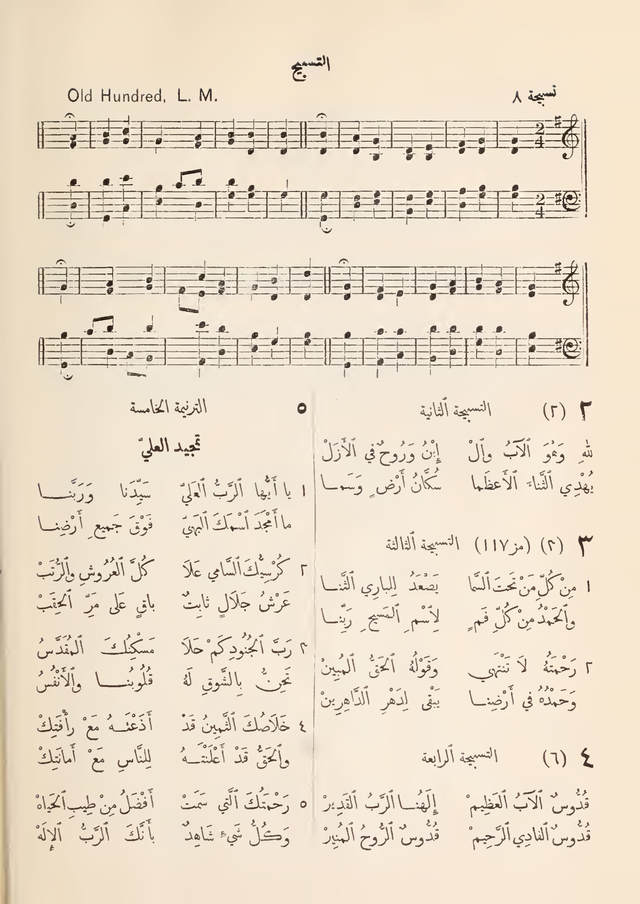 التسبيح
Old Hundred, L. M.
تسبيحة ٨
٢ (٢) التسبيحة الثانية
للهِ وَهُوَ ٱلْآبُ وٱلْ إِبْنُ وَرُوحٌ في ٱلأَزَلْ
يُهْدِي ٱلثَّناءَ ٱلْأَعظَما سُكَّانُ أَرْضٍ وَسَما
٣ (٢) (مز ١١٧) التسبيحة الثالثة
١ مِنْ كُلِّ مَنْ تَحْتَ ٱلسَّما يَصْعَدُ لِلبارِي ٱلثَّنا
وٱلحَمْدُ مِنْ كُلِّ فَمٍ لِٱسْمِ ٱلمَسِيحِ رَبِّنا
٢ رَحْمَتُهُ لَا تَنْتَهي وَقَوْلُهُ ٱلحَقُّ ٱلمُبِينْ
وَحَمْدُهُ في أَرْضِنا يَبْقى لِدَهْرِ ٱلدَّاهِرِينْ
٤ (٦) التسبيحة الرابعة
قُدُّوسٌ ٱلآبُ ٱلعَظِيمْ إِلَهُنا ٱلرَّبُّ ٱلقَدِيرْ
قُدُّوسٌ ٱلفَادِي ٱلرَّحِيمْ قُدُّوسٌ ٱلرُّوحُ ٱلمُنِيرْ
٥ الترنيمة الخامسة
تمجيد العليّ
١ يا أَيُّها ٱلرَّبُّ ٱلعَلِيّ سَيِّدَنا وَرَبَّنا
ما أَمْجَدَ ٱسْمَكَ ٱلبَهِيّ فَوْقَ جَمِيعِ أَرْضِنا
٢ كُرْسِيُّكَ ٱلسَّامي عَلَا كُلَّ ٱلعُرُوشِ وٱلرُّتَبْ
عَرْشُ جَلَالٍ ثابِتٌ باقٍ عَلَى مَرِّ ٱلحِقَبْ
٣ رَبَّ ٱلجُنُودِ كَمْ حَلَا مَسْكِنُكَ ٱلمُقَدَّسُ
نَحِنُّ بِٱلشَّوْقِ لَهُ قُلُوبُنا وٱلأَنْفُسُ
٤ خَلَاصُكَ ٱلثَّمِينُ قَدْ أَذَعْتَهُ مَعْ رَأْفَتِكْ
وٱلحَقُّ قَدْ أَعْلَنْتَهُ لِلنَّاسِ مَعْ أَمَانَتِكْ
٥ رَحْمَتُكَ ٱلَّتي سَمَتْ أَفْضَلُ مِنْ طِيبِ ٱلحَيَاهْ
وَكُلُّ شَيْءٍ شَاهِدٌ بِأَنَّكَ ٱلرَّبُّ ٱلإِلهْ